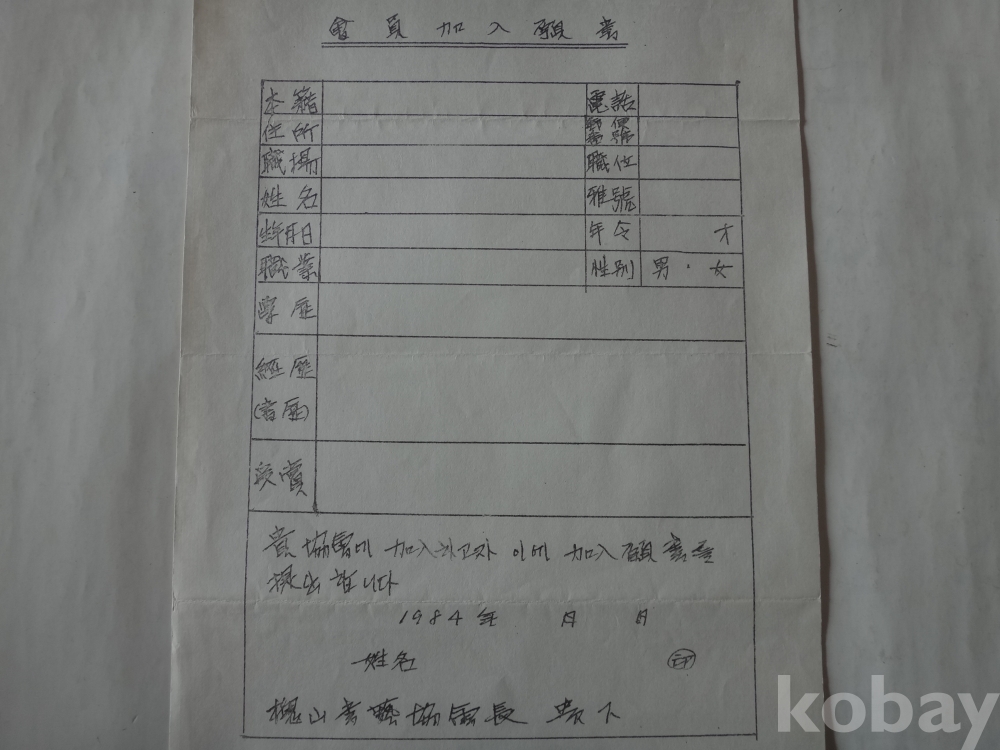 會員加入願書
本籍 電話
住所 郵便番號
職場 職位
姓名 雅號
生年月日 年令 才
職業 性別 男 · 女
學歷
經歷
(書歷)
受賞
貴協會에 加入하고자 이에 加入願書를
提出합니다
1984年 月 日
姓名 印
槐山書藝協會長 貴下
kobay